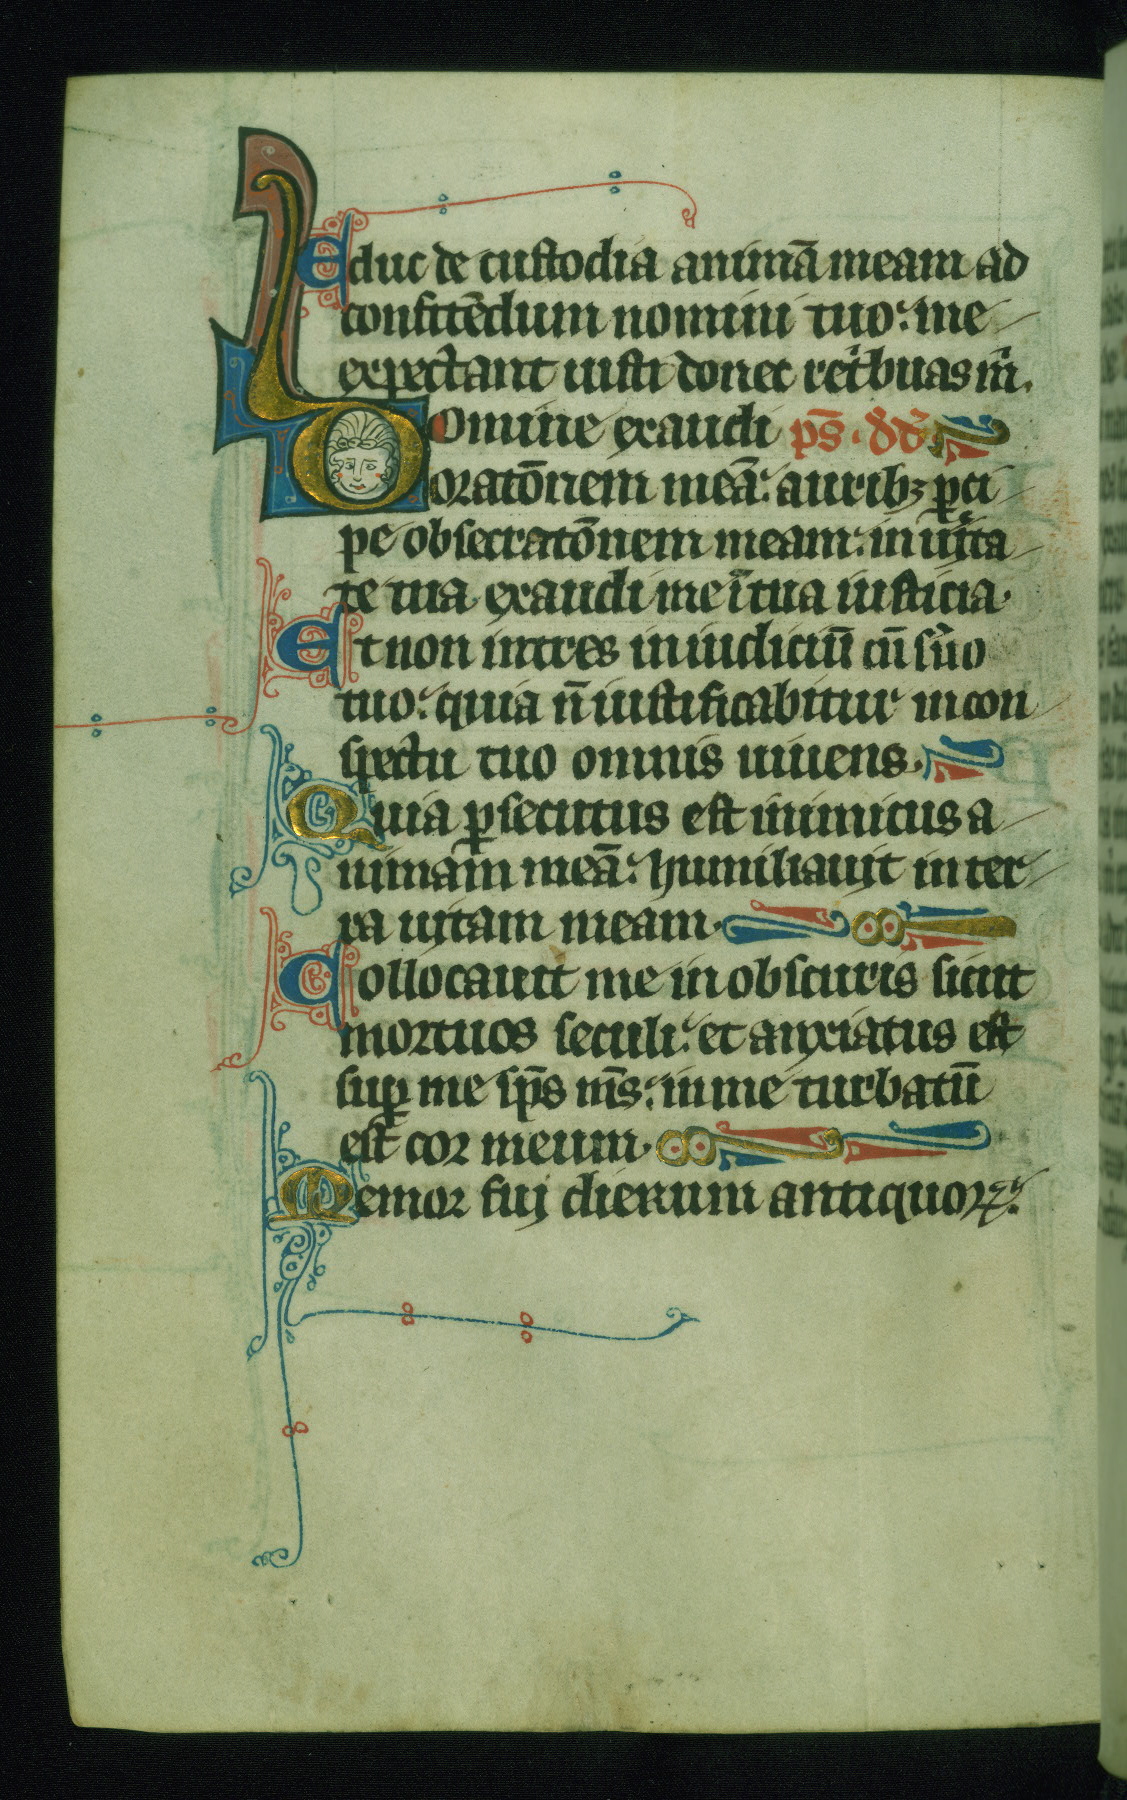 Educ de custodia animā meam ad
confitēdum nomini tuo: me
expectant iusti donec ret'buas m'.
Domine exaudi ps̄. dd'
oratōnem meā: auribꝫ ꝑci
pe obsecratōnem meam: in uˀita
te tua exaudi me ī tua iusticia.
Et non intres in iudiciū cū sˀuo
tuo: quia n̄ iustificabitur in con
spectu tuo omnis uiuens.
Quia ꝑsecutus est inimicus a
nimam meā: humiliauit in ter
ra uitam meam.
Collocauit me in obscuris sicut
mortuos seculi: et anxiatus est
suꝑ me sp̄s m̄s: in me turbatū
est cor meum.
Memor fui dierum antiquoꝝ: